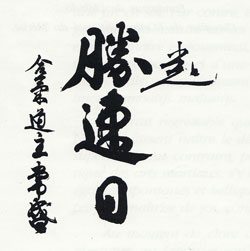 勝速日
合氣道主常盛